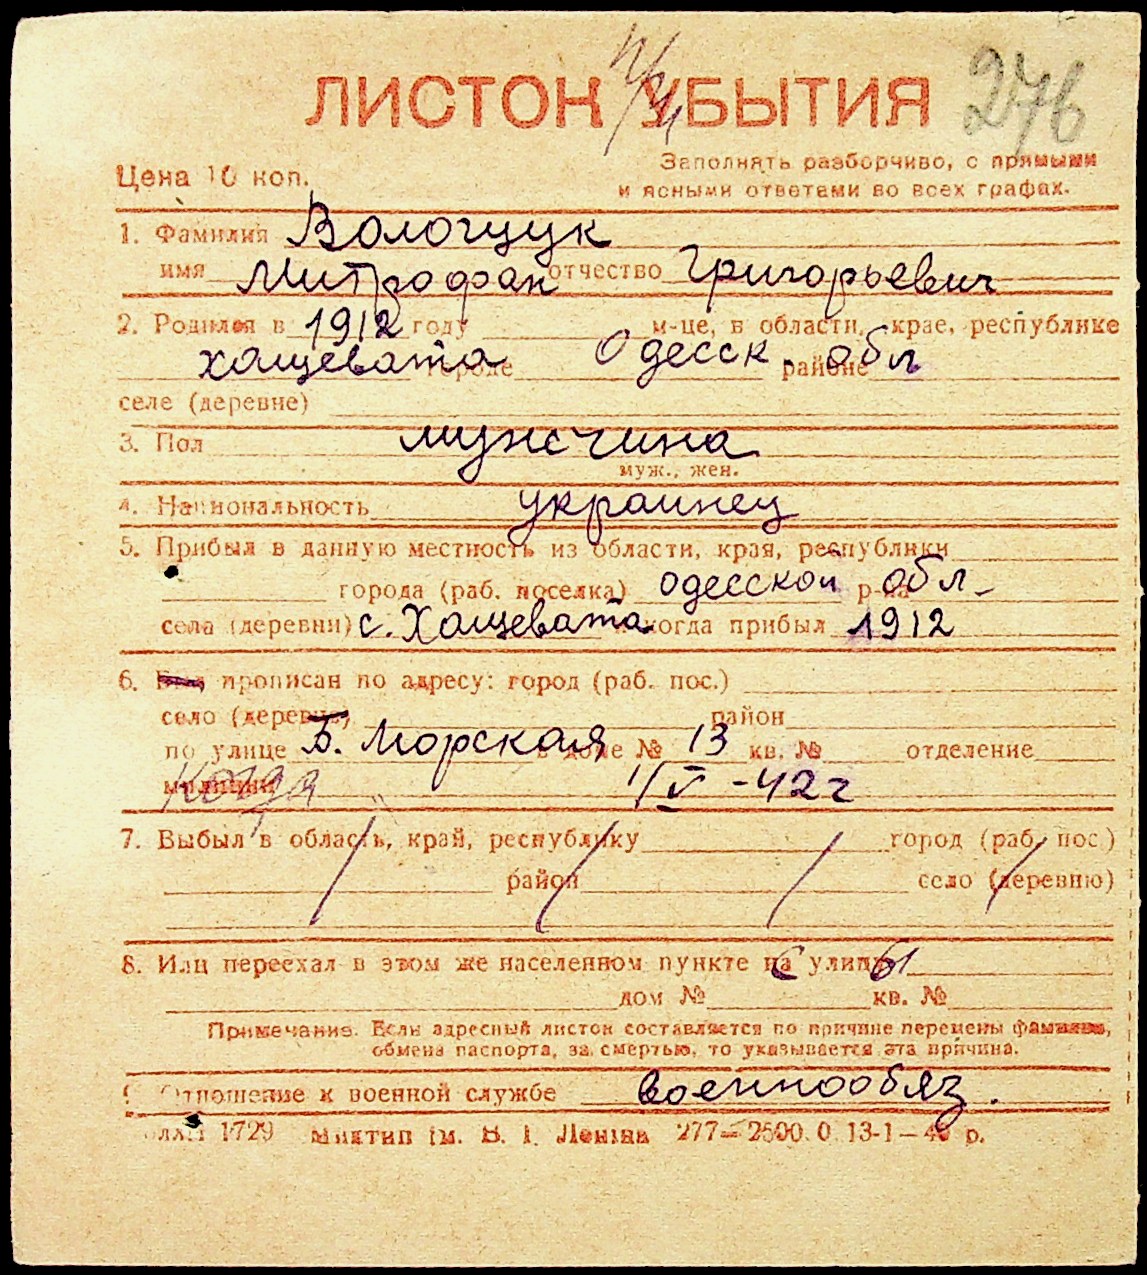 ЛИСТОК УБЫТИЯ 276
Цена 10 коп.
Заполнять разборчиво, с прямыми
и ясными ответами во всех графах.
1. Фамилия Вологщук
имя Митрофан отчество Григорьевич
2. Родился в 1912 году м-це, в области, крае, республике
хощевата городе Одесск. районе обл
селе (деревне)
3. Пол мужчина
муж., жен.
4. Национальность украинец
5. Прибыл в данную местность из области, края, республики
города (раб. поселка) одесской р-на обл-
села (деревни) с. Хощевата и когда прибыл 1912
6. прописан по адресу: город (раб. пос.)
село (деревне) район
по улице Б. Морская в доме № 13 кв. № отделение
милиции Когда 1/V-42 г
7. Выбыл в область, край, республику город (раб. пос.)
район село (деревню)
8. Или переехал в этом же населенном пункте на улицу
дом № кв. №
Примечание. Если адресный листок составляется по причине перемены фамилии,
обмена паспорта, за смертью, то указывается эта причина.
Отношение к военной службе военнообяз.
1729 Миктип ім. В. І. Леніна 277—2500. 0. 13-1—4 р.